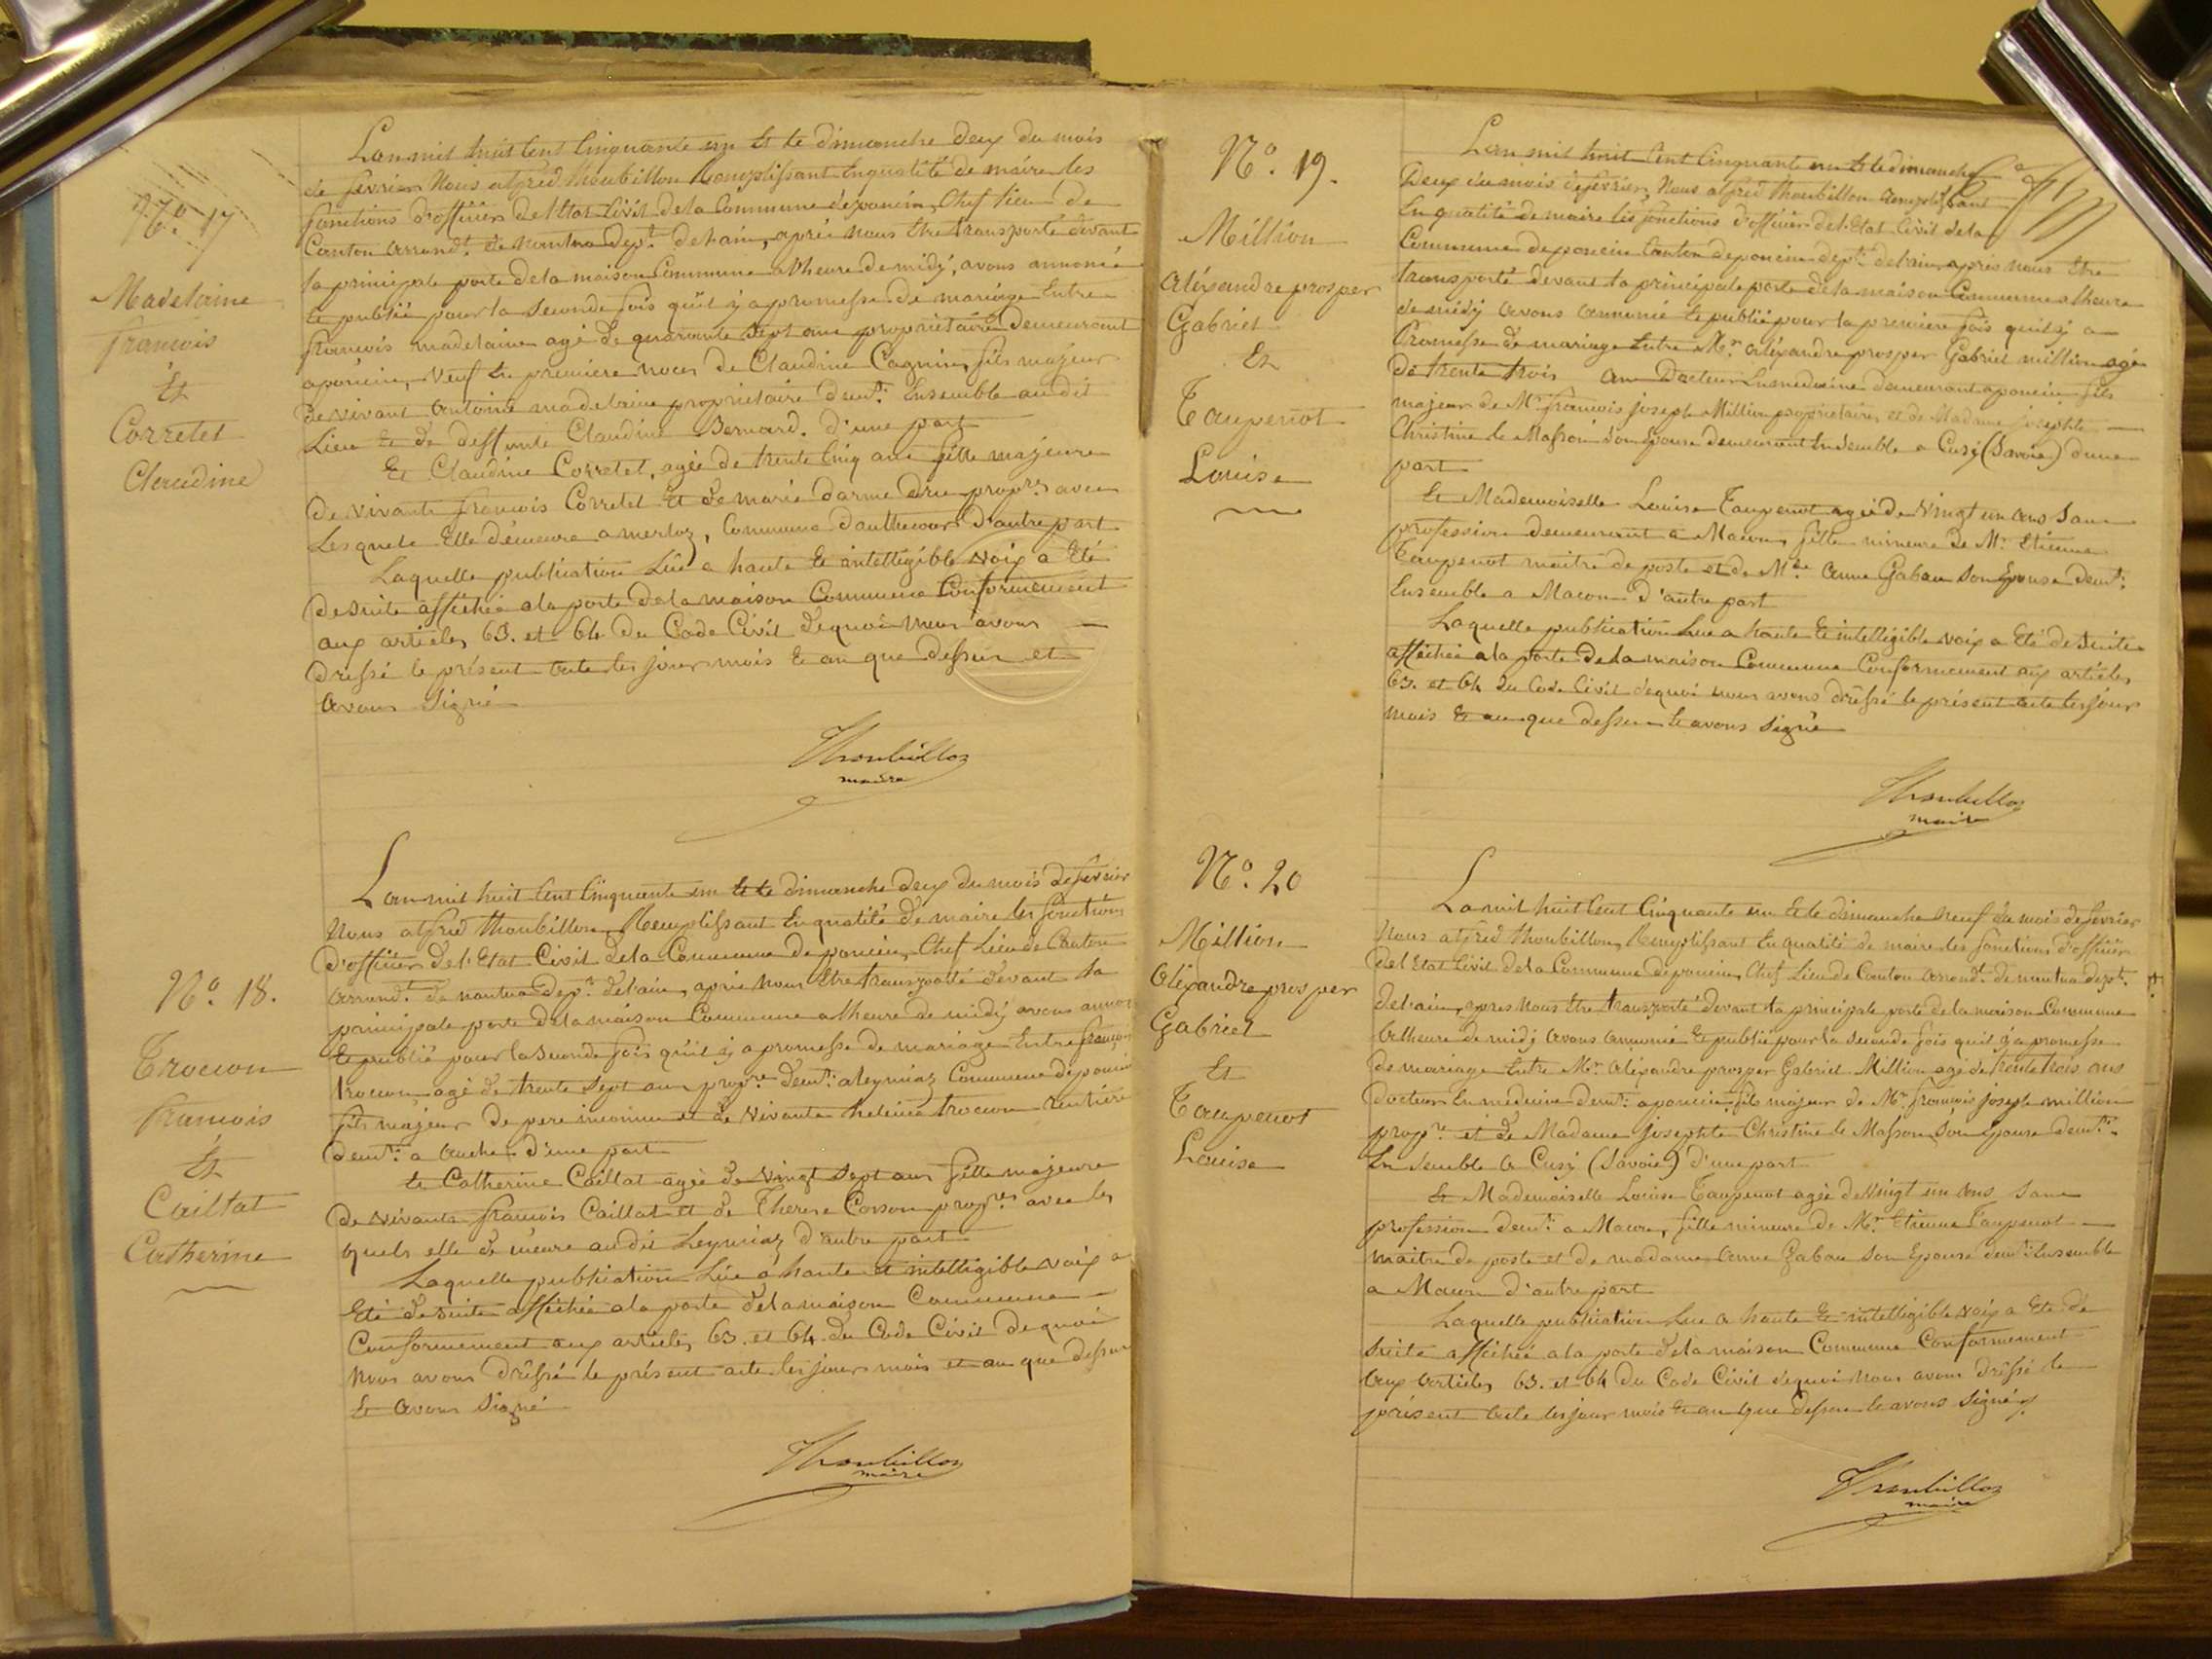 N.º 17
Madelaine
francois
Et
Corretet
Claudine
Lan mil huit Cent Cinquante un Et le dimanche deux du mois
de fevrier Nous alfred thoubillon Remplissant En qualité de maire les
fonctions d'officier de l'Etat Civil de la Commune de poncin, Chef lieu de
Canton arrond.t de nantua dep.t de l'ain, après nous Etre transporté devant
la principale porte de la maison Commune a l'heure de midy, avons annoncé
Et publié pour la seconde fois qu'il y a promesse de mariage Entre
francois madelaine agé de quarante sept ans propriétaire demeurant
a poncin, Veuf En premiere noces de Claudine Cagnin, fils majeur
de vivant antoine madelaine propriétaire dem.t Ensemble audit
Lieu Et de deffunte Claudine Bernard. d'une part
Et Claudine Corretet, agée de trente Cinq ans fille majeure
de vivants francois Corretet Et de marie darme dru prop.res avec
Lesquels Elle demeure a merloz, Commune d'authecour d'autre part
Laquelle publication Lûe a haute Et intelligible voix a Eté
de suite affichée a la porte de la maison Commune Conformement
aux articles 63. et 64 du Code Civil de quoi nous avons
dressé le présent acte les jour mois Et an que dessus et
avons signé
Thoubillon
maire
N.º 18.
Trocon
francois
Et
Caillat
Catherine
Lan mil huit Cent Cinquante un Et le dimanche deux du mois de fevrier
Nous alfred thoubillon, Remplissant En qualité de maire les fonctions
d'officier de l'Etat Civil de la Commune de poncin, Chef Lieu de Canton
arrond.t de nantua dep.t de l'ain, aprés nous Etre transporté devant la
principale porte de la maison Commune a l'heure de midy avons annon
Et publié pour la seconde fois qu'il y a promesse de mariage Entre françois
trocon agé de trente sept ans prop.re dem.t a leymiaz Commune de poncin
fils majeur de pere inconnu et de vivante heleine trocon rentière
dem.t a d'une part
Et Catherine Caillat agée de vingt sept ans fille majeure
de vivants francois Caillat et de Therese Corson prop.res avec les
quels elle demeure audit Leymiaz d'autre part
Laquelle publication Lûe a haute et intelligible voix a
Eté de suite affichée a la porte de la maison Commune
Conformement aux articles 63. et 64. du Code Civil de quoi
nous avons dressé le présent acte les jour mois et an que dessus
Et avons signé
Thoubillon
maire
N.º 19.
Million
aléxandre prosper
Gabriel
Et
Taupenot
Louise
Lan mil huit Cent Cinquante un Et le dimanche
Deux du mois de fevrier, Nous alfred thoubillon Remplissant
En qualité de maire les fonctions d'officier de l'Etat Civil de la
Commune de poncin Canton de poncin dep.t de l'ain, après nous Etre
transporté devant la principale porte de la maison Commune a l'heure
de midy avons annoncé Et publié pour la premiere fois qu'il y a
Promesse de mariage Entre M.r aléxandre prosper Gabriel million agé
de trente trois ans Docteur En medecine demeurant a poncin, fils
majeur de M.r francois joseph Million propriétaire, et de Madame josephte
Christine le Masson son Epouse demeurant Ensemble a Cusy (Savoie) d'une
part
Et Mademoiselle Louise Taupenot agée de vingt un ans sans
profession demeurant a Macon, fille mineure de M.r Etienne
Taupenot maitre de poste et de M.de anne Gabau son Epouse dem.t
Ensemble a Macon d'autre part
Laquelle publication Lue a haute Et intelligible voix a Eté de suite
affichée a la porte de la maison Commune Conformement aux articles
63. et 64 du Code Civil de quoi nous avons dressé le présent acte les jour
mois Et an que dessus Et avons signé
Thoubillon
maire
N.º 20
Million
Aléxandre prosper
Gabriel
Et
Taupenot
Louise
Lan mil huit Cent Cinquante un Et le dimanche neuf du mois de fevrier
Nous alfred thoubillon, Remplissant En qualité de maire les fonctions d'officier
de l'Etat Civil de la Commune de poncin, Chef Lieu de Canton arrond.t de nantua dep.t
de l'ain, apres nous Etre transporté devant la principale porte de la maison Commune
a l'heure de midy avons annoncé Et publié pour la seconde fois qu'il y a promesse
de mariage Entre M.r aléxandre prosper Gabriel Million agé de trente trois ans
docteur En medecine dem.t a poncin, fils majeur de M.r francois joseph million
prop.re et de Madame josephte Christine le Masson son Epouse dem.t
Ensemble a Cusy (Savoie) d'une part
Et Mademoiselle Louise Taupenot agée de vingt un ans sans
profession dem.t a Macon, fille mineure de M.r Etienne Taupenot
maitre de poste et de madame anne Gabau son Epouse dem.t Ensemble
a Macon d'autre part
Laquelle publication Lue a haute Et intelligible voix a Eté de
suite affichée a la porte de la maison Commune Conformement
aux articles 63. et 64 du Code Civil de quoi nous avons dressé le
présent acte les jour mois Et an que dessus Et avons signé
Thoubillon
maire